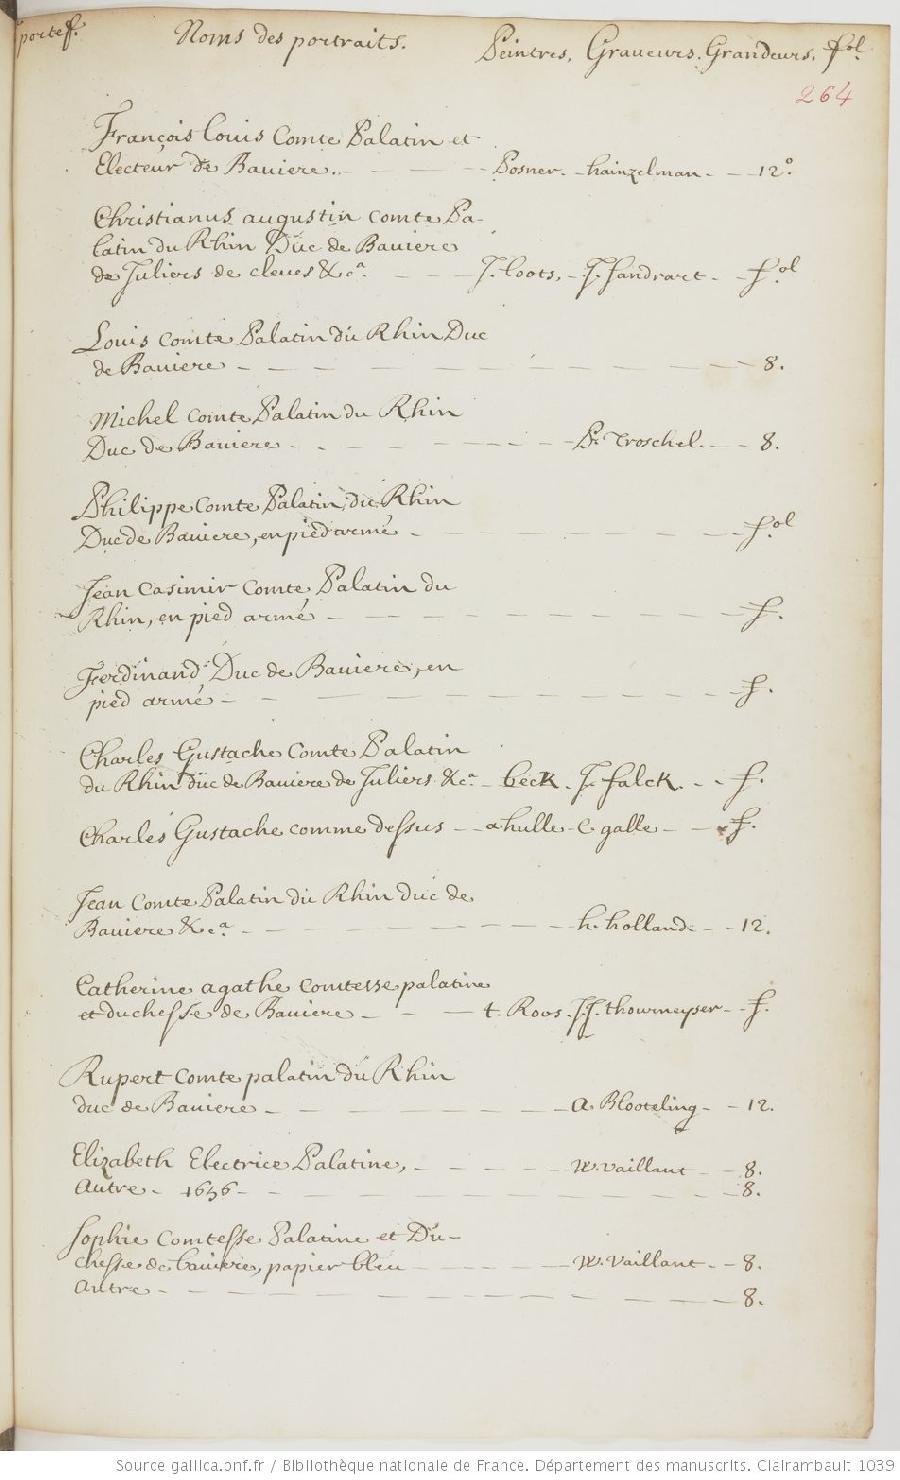 portef. Noms des portraits. Peintres, Graveurs. Grandeurs. fol.
264
François Louis Comte Palatin et
Electeur de Baviere. Posner. hainzelman. 12º.
Christianus augustin comte Pa-
latin du Rhin Duc de Baviere
de Juliers de cleves &cª. J. loots, J. Sandrart. fol.
Louis comte Palatin du Rhin Duc
de Baviere 8.
Michel comte Palatin du Rhin
Duc de Baviere P. Troschel. 8.
Philippe comte Palatin, du Rhin
Duc de Baviere, en pied armé fol.
Jean Casimir Comte Palatin du
Rhin, en pied armé f.
Ferdinand Duc de Baviere, en
pied armé f.
Charles Gustache Comte Palatin
du Rhin duc de Baviere de Juliers &cª beck. J. falck. f.
Charles Gustache comme dessus a hulle C. galle f.
Jean Comte Palatin du Rhin duc de
Baviere &cª h. holland. 12.
Catherine agathe comtesse palatine
et duchesse de Baviere t. Roos. J.J. thourneyser f.
Rupert comte palatin du Rhin
duc de Baviere A. Blooteling 12.
Elizabeth Electrice Palatine, W. vaillant 8.
Autre 1656 8.
Sophie Comtesse Palatine et Du-
chesse de baviere, papier bleu W. Vaillant 8.
Autre 8.
Source gallica.bnf.fr / Bibliothèque nationale de France. Département des manuscrits. Clairambault 1039